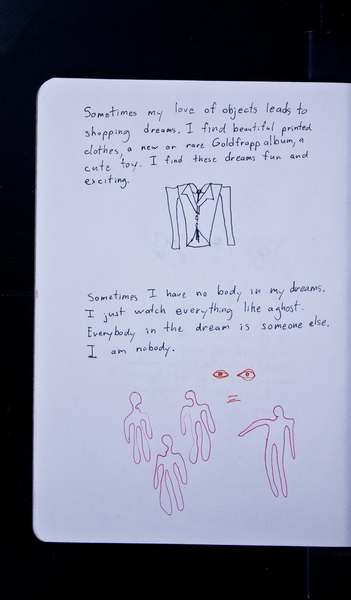 Sometimes my love of objects leads to
shopping dreams. I find beautiful printed
clothes, a new or rare Goldfrapp album, a
cute toy. I find these dreams fun and
exciting.
Sometimes I have no body in my dreams.
I just watch everything like a ghost.
Everybody in the dream is someone else.
I am nobody.